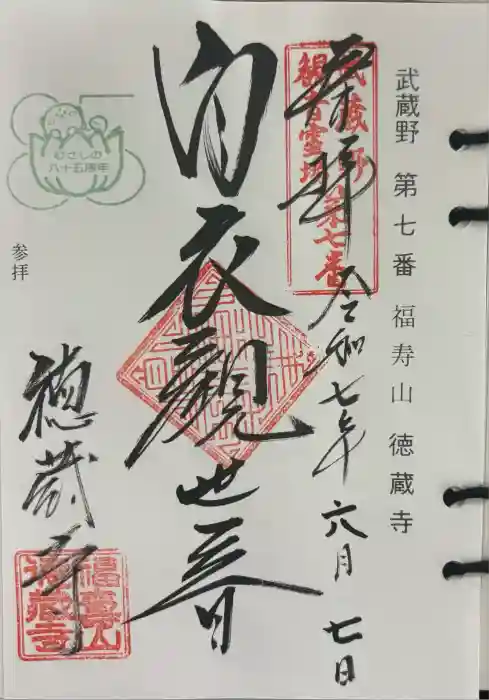 武蔵野 第七番 福寿山 徳蔵寺
武蔵野
観音霊場
第七番
奉拝 令和七年 六月 七日
白衣観世音
徳蔵寺
むさしの
八十五周年
参拝
福寿山
徳蔵寺